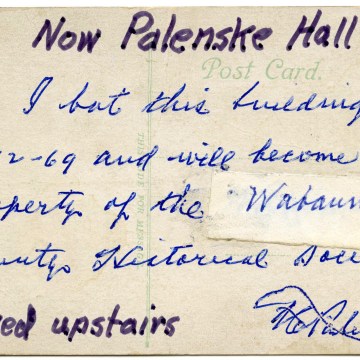 Now Palenske Hall
Post Card.
I bot this building
2-69 and will become
operty of the Wabaun
unty Historical Soc
ed upstairs